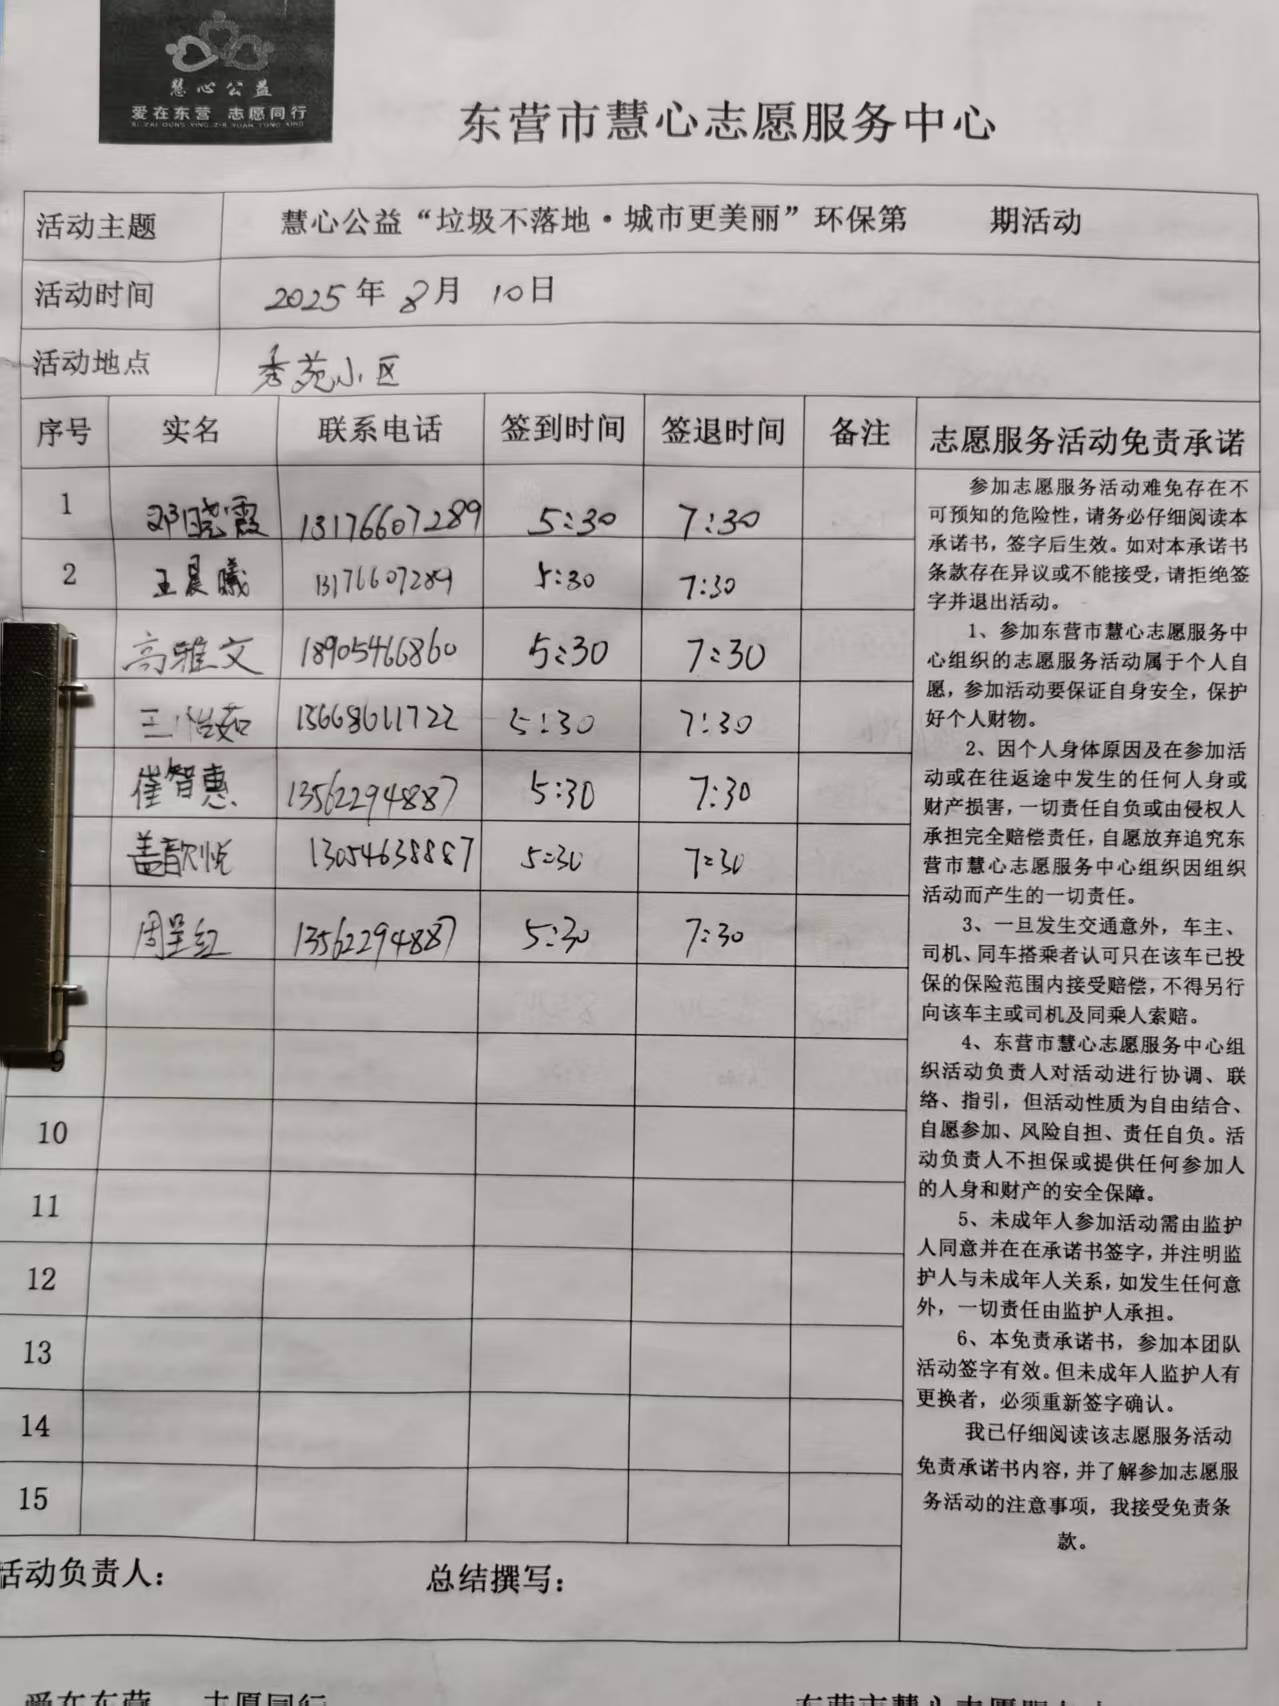 慧心公益
爱在东营 志愿同行
东营市慧心志愿服务中心
活动主题 慧心公益“垃圾不落地·城市更美丽”环保第 期活动
活动时间 2025年 8月 10日
活动地点 秀苑小区
序号 实名 联系电话 签到时间 签退时间 备注
1 邓晓霞 13176607289 5:30 7:30
2 王晨曦 13176607289 5:30 7:30
高雅文 18905466860 5:30 7:30
王怡茹 13668611722 5:30 7:30
崔智惠 13562294887 5:30 7:30
盖歆悦 13054638887 5:30 7:30
周呈红 13562294887 5:30 7:30
9
10
11
12
13
14
15
活动负责人： 总结撰写：
志愿服务活动免责承诺
参加志愿服务活动难免存在不
可预知的危险性，请务必仔细阅读本
承诺书，签字后生效。如对本承诺书
条款存在异议或不能接受，请拒绝签
字并退出活动。
1、参加东营市慧心志愿服务中
心组织的志愿服务活动属于个人自
愿，参加活动要保证自身安全，保护
好个人财物。
2、因个人身体原因及在参加活
动或在往返途中发生的任何人身或
财产损害，一切责任自负或由侵权人
承担完全赔偿责任，自愿放弃追究东
营市慧心志愿服务中心组织因组织
活动而产生的一切责任。
3、一旦发生交通意外，车主、
司机、同车搭乘者认可只在该车已投
保的保险范围内接受赔偿，不得另行
向该车主或司机及同乘人索赔。
4、东营市慧心志愿服务中心组
织活动负责人对活动进行协调、联
络、指引，但活动性质为自由结合、
自愿参加、风险自担、责任自负。活
动负责人不担保或提供任何参加人
的人身和财产的安全保障。
5、未成年人参加活动需由监护
人同意并在在承诺书签字，并注明监
护人与未成年人关系，如发生任何意
外，一切责任由监护人承担。
6、本免责承诺书，参加本团队
活动签字有效。但未成年人监护人有
更换者，必须重新签字确认。
我已仔细阅读该志愿服务活动
免责承诺书内容，并了解参加志愿服
务活动的注意事项，我接受免责条
款。
爱在东营 志愿同行
东营市慧心志愿服务中心